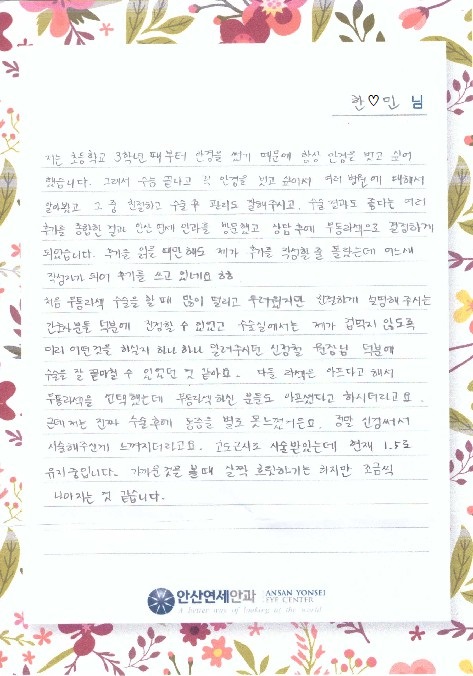 한♡민 님
저는 초등학교 3학년 때부터 안경을 썼기 때문에 항상 안경을 벗고 싶어
했습니다. 그래서 수능 끝나고 꼭 안경을 벗고 싶어서 여러 병원에 대해서
알아봤고 그 중 친절하고 수술 후 관리도 잘해주시고, 수술 결과도 좋다는 여러
후기를 종합한 결과 안산 연세 안과를 방문했고 상담 후에 무통라섹으로 결정하게
되었습니다. 후기를 읽을 때만 해도 제가 후기를 작성할 줄 몰랐는데 어느새
작성자가 되어 후기를 쓰고 있네요 ㅎㅎ
처음 무통라섹 수술을 할 때 많이 떨리고 두려웠지만 친절하게 설명해 주시는
간호사분들 덕분에 진정할 수 있었고 수술실에서는 제가 겁먹지 않도록
미리 어떤 것을 하실지 하나 하나 알려주시던 원장님 덕분에
수술을 잘 끝마칠 수 있었던 것 같아요. 다들 라섹은 아프다고 해서
무통라섹을 선택했는데 무통라섹하신 분들도 아프셨다고 하시더라고요.
근데 저는 진짜 수술 후에 통증을 별로 못느꼈거든요. 정말 신경써서
시술해주신게 느껴지더라고요. 고도근시로 시술받았는데 현재 1.5로
유지중입니다. 가까운 것을 볼 때 살짝 흐릿하기는 하지만 조금씩
나아지는 것 같습니다.
안산연세안과 ANSAN YONSEI
EYE CENTER
A better way of looking at the world